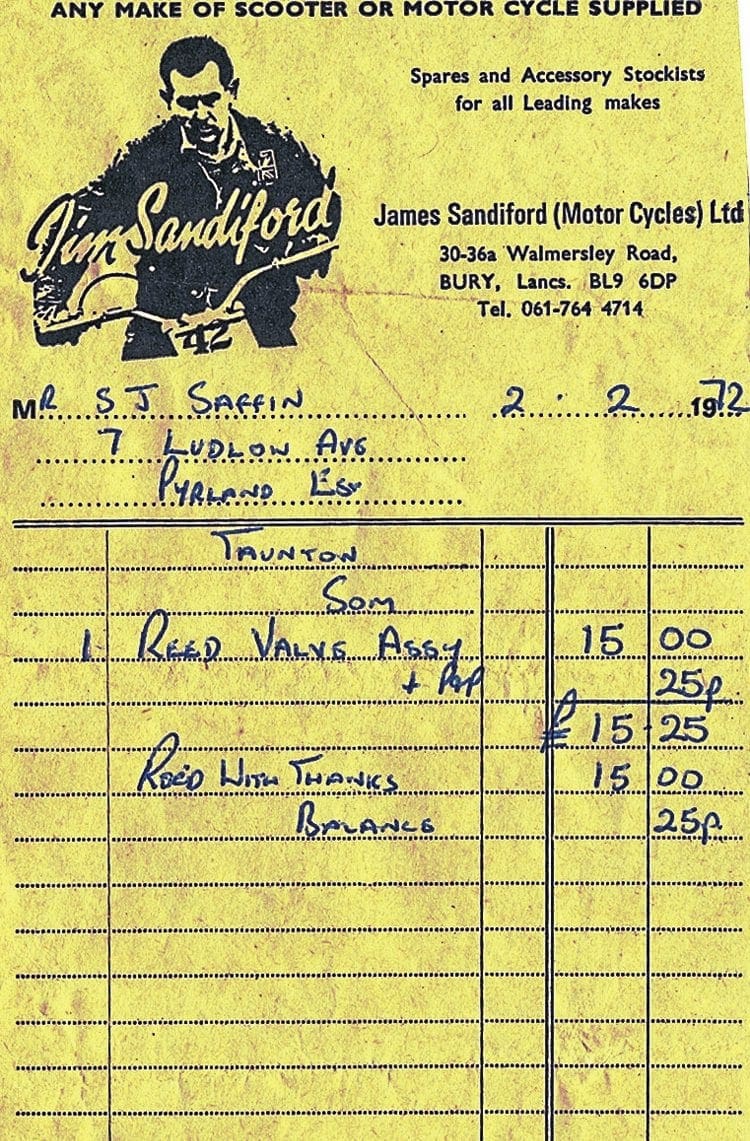 ANY MAKE OF SCOOTER OR MOTOR CYCLE SUPPLIED
Spares and Accessory Stockists
for all Leading makes
Jim Sandiford
James Sandiford (Motor Cycles) Ltd
30-36a Walmersley Road,
BURY, Lancs. BL9 6DP
Tel. 061-764 4714
42
MR S J SAFFIN 2 . 2 1972
7 LUDLOW AVE
PYRLAND EST
TAUNTON
SOM
1 REED VALVE ASSY 15 00
+ P&P 25p
£ 15·25
REC'D WITH THANKS 15 00
BALANCE 25p.